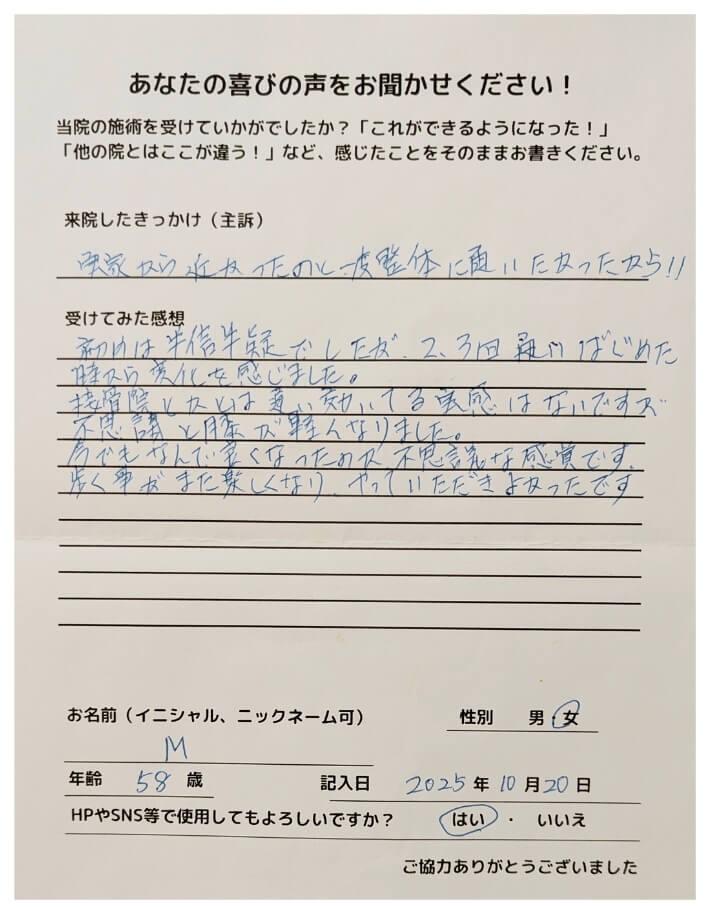 あなたの喜びの声をお聞かせください！
当院の施術を受けていかがでしたか？「これができるようになった！」
「他の院とはここが違う！」など、感じたことをそのままお書きください。
来院したきっかけ（主訴）
実家から近かったのと一度整体に通いたかったから!!
受けてみた感想
初めは半信半疑でしたが、2、3回通いはじめた
時から変化を感じました。
接骨院とかとは違い効いてる実感はないですが
不思議と膝が軽くなりました。
今でもなんで良くなったのか不思議な感覚です。
歩く事がまた楽しくなり、やっていただきよかったです
お名前（イニシャル、ニックネーム可）
性別 男・女
M
年齢 58 歳
記入日 2025 年 10 月 20 日
HPやSNS等で使用してもよろしいですか？ はい ・ いいえ
ご協力ありがとうございました